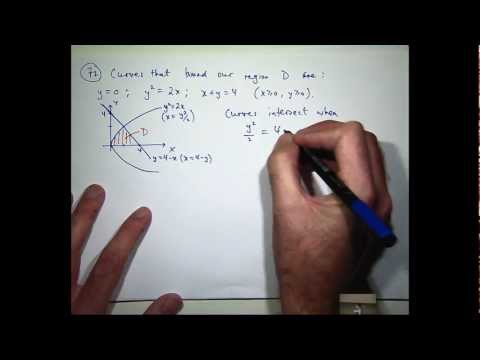 71 Curves that bound our region D are:
y=0; y² = 2x; x+y=4 (x≥0, y≥0).
Y
4
y²=2x
(x = y²/2)
D
4
X
y=4-x (x=4-y)
Curves intersect when
y²/2 = 4